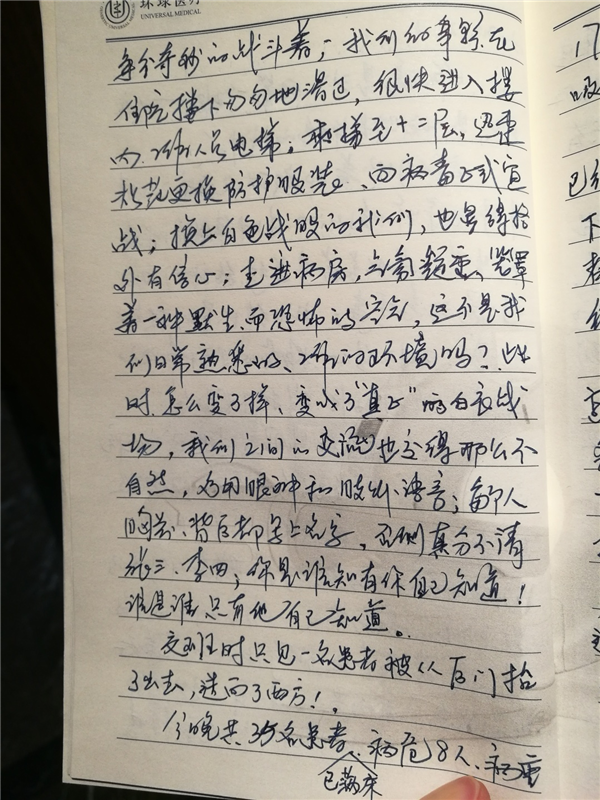 环球医疗
UNIVERSAL MEDICAL
争分夺秒的战斗着；我们的身影在
住院楼下匆匆地滑过，很快进入楼
内、工作人员电梯；乘梯至十二层，迅速
更换防护服装、向病毒正式宣
战；换上白色战服的我们，也显得格
外有信心；走进病房，气氛凝重、笼罩
着一种默生、而恐怖的空气，这不是我
们日常熟悉的、工作的环境吗？此
时怎么变了样、变成了"真正"的白衣战
场，我们之间的交流也变得那么不
自然，多用眼神和肢体语言；每个人
胸前、背后都写上名字，否则真分不清
张三、李四，你是谁知有你自己知道！
谁是谁只有他自己知道。
交班时只见一名患者被从后门抬
了出去，送向了西方！
今晚共35名患者、病危8人、病重
已满床